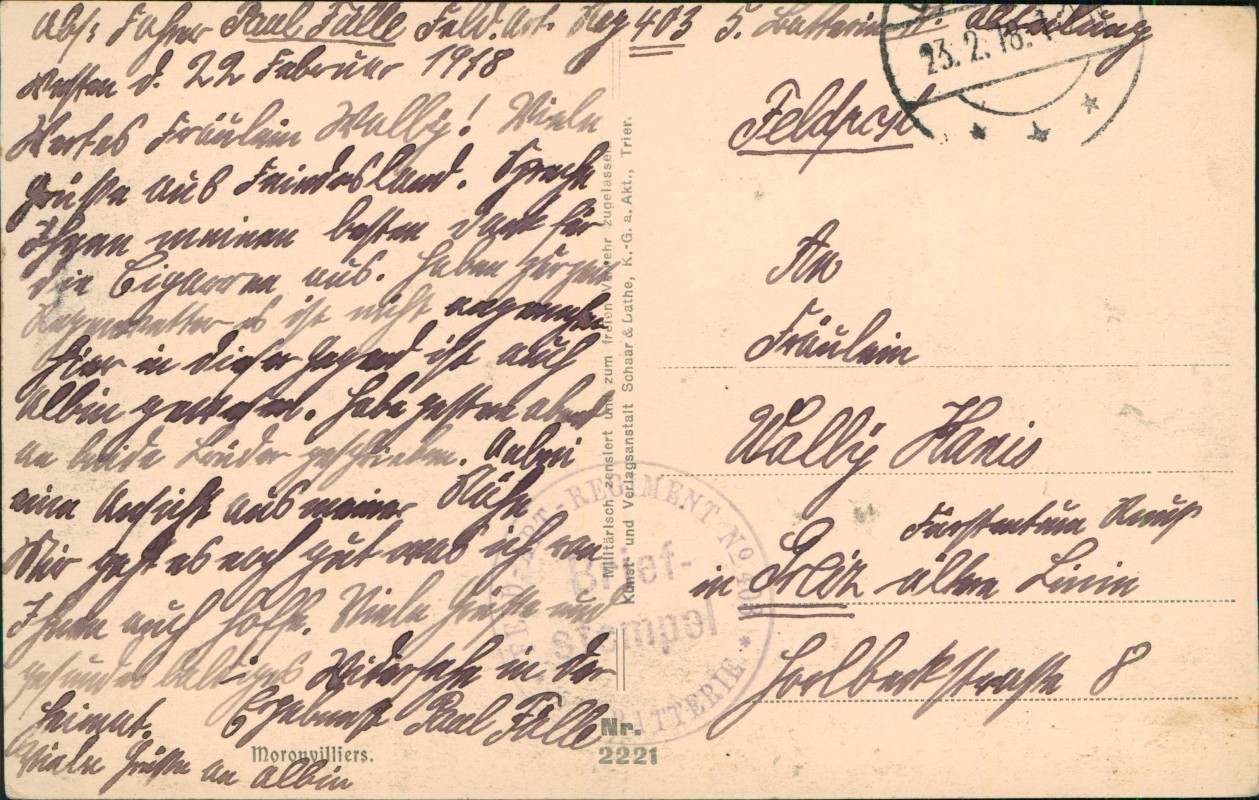 Abs: Fahrer Paul Fälle Feld. Art. Reg 403 5. Batterie Abteilung
Westen d. 22 Februar 1918
Wertes Fräulein Wally! Viele
Grüße aus Feindesland. Spreche
Ihnen meinen besten Dank für
die Cigarren aus. Haben
Regenwetter es ist nicht
hier in dieser Gegend ist auch
Albin gewesen. Habe gestern abend
an beide Brüder geschrieben. Anbei
eine Ansicht aus meiner Nähe
Mir geht es noch gut was ich von
Ihnen auch hoffe. Viele Grüße und
gesundes baldiges Wiedersehn in der
Heimat. Ergebenst Paul Fälle
Viele Grüße an Albin
Moronvilliers.
Nr.
2221
Militärisch zensiert und zum freien Verkehr zugelassen.
Kunst- und Verlagsanstalt Schaar & Dathe, K.-G. a. Akt., Trier.
FELD-ART-REGIMENT No 403
Brief-
stempel
BATTERIE *
23.2.18.
Feldpost
An
Fräulein
Wally Hanis
Fürstentum Reuß
in Greiz ältere Linie
straße 8